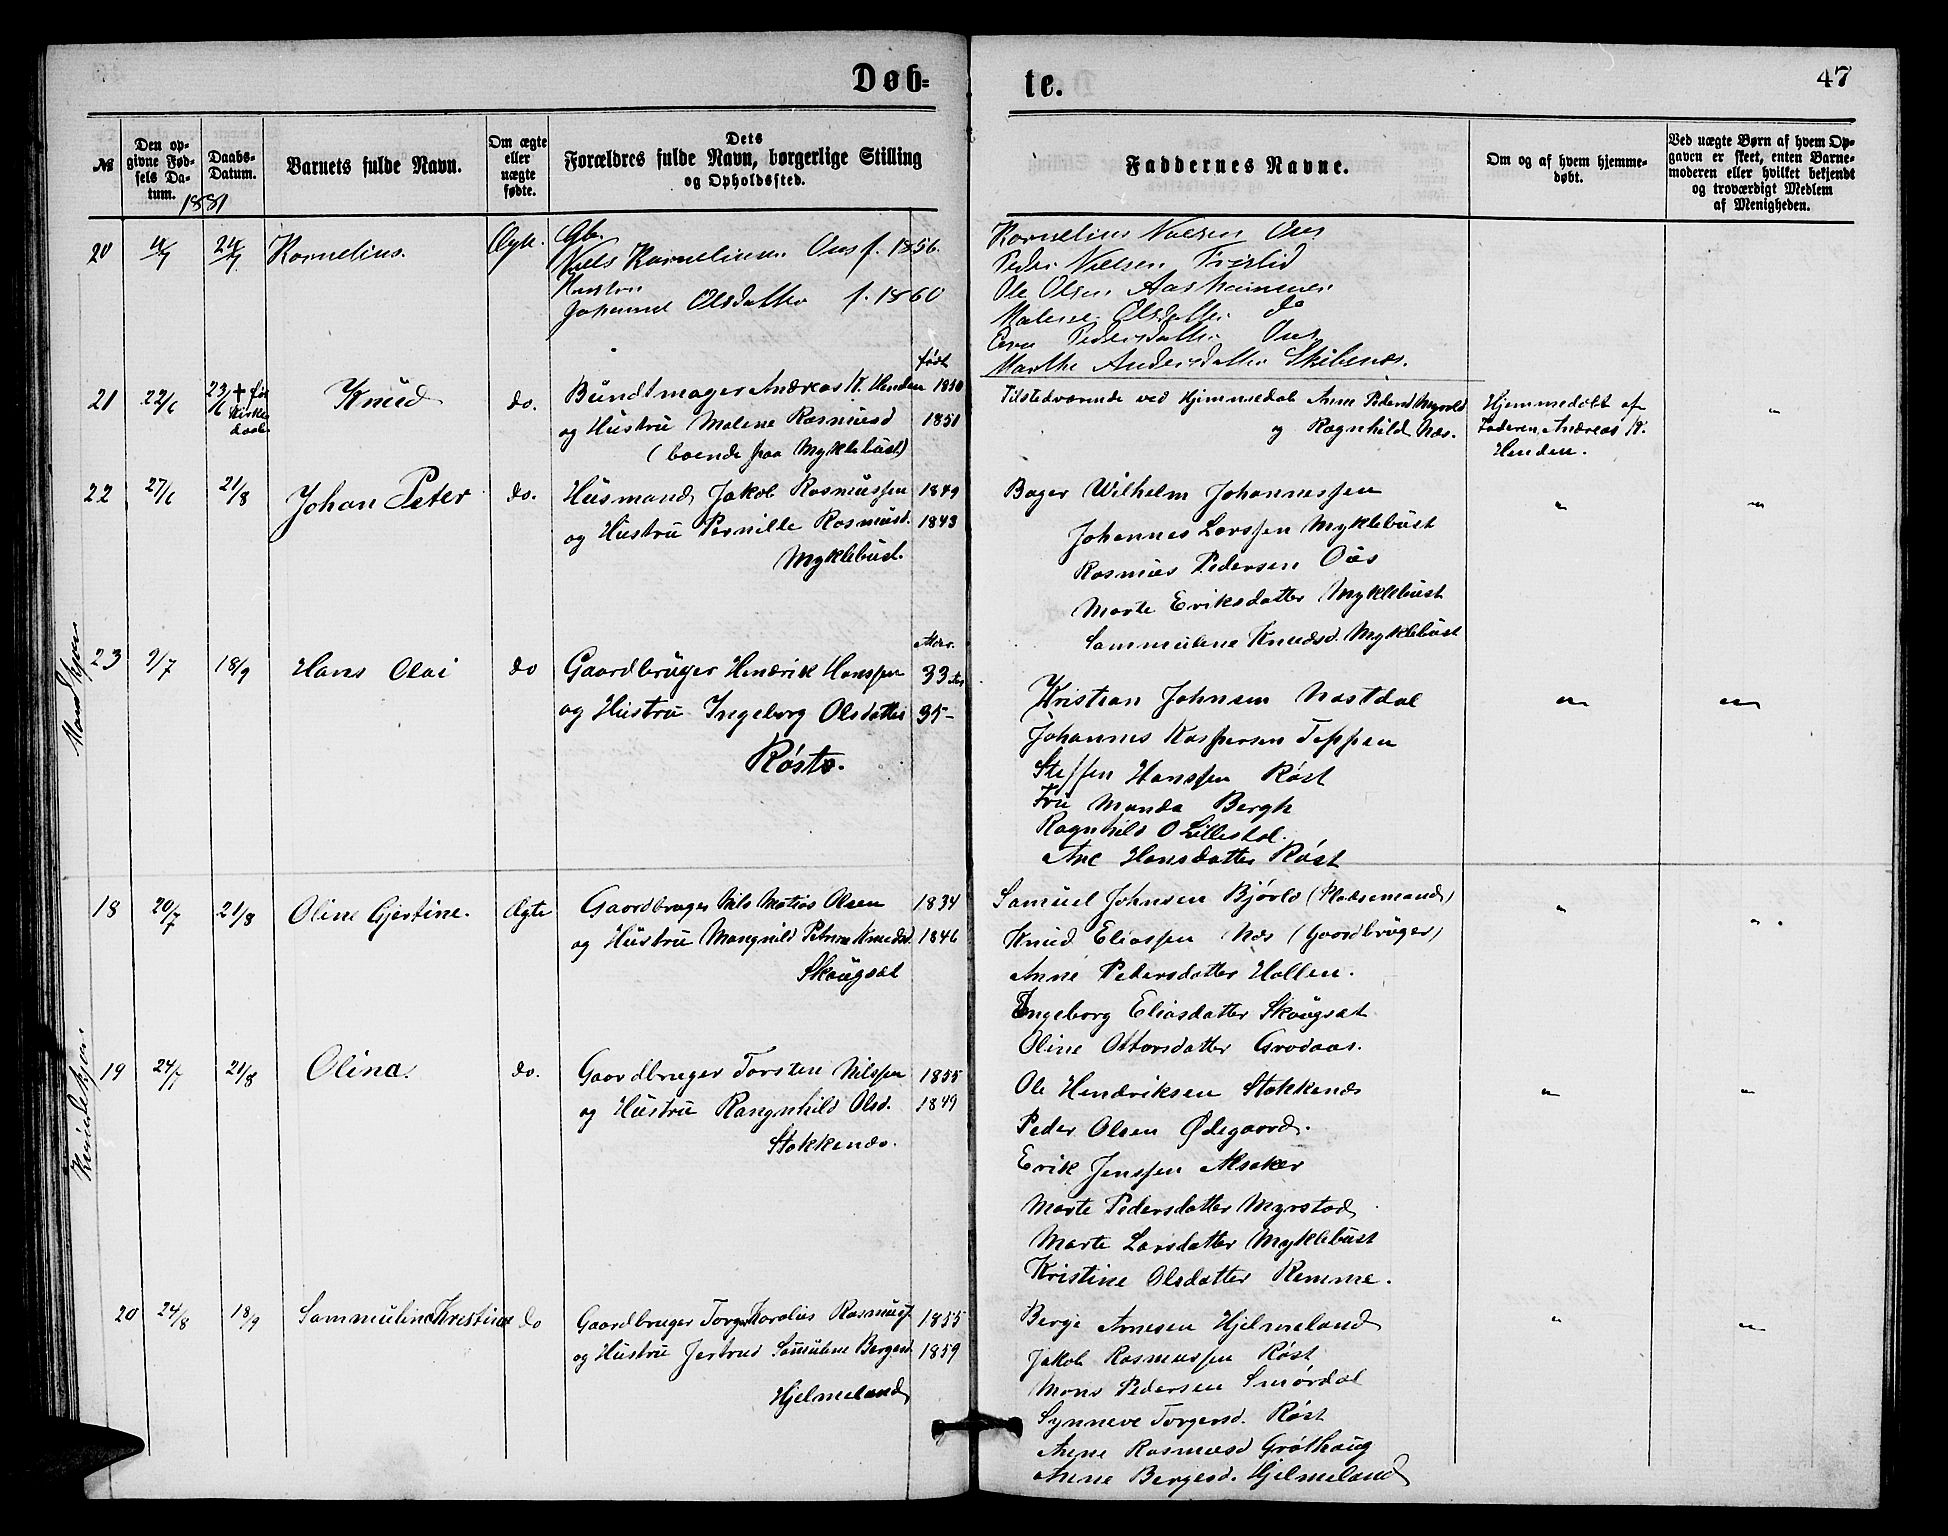 Døb-
te.
47
№
Den op-
givne Fød-
sels Da-
tum.
Daabs-
Datum.
1881
Barnets fulde Navn.
Om ægte
eller
uægte
fødte.
Dets
Forældres fulde Navn, borgerlige Stilling
og Opholdssted.
Faddernes Navne.
Om og af hvem hjemme-
døbt.
Ved uægte Børn af hvem Op-
gaven er skeet, enten Barne-
moderen eller hvilket bekjendt
og troværdigt Medlem
af Menigheden.
Mandkjøn
20
24/7
Kornelius.
Ægte.
Gb.
Niels Korneliusen Ous f. 1856.
Hustru
Johanne Olsdatter f. 1860
Kornelius Nielsen Ous
Peder Nielsen
Ole Olsen Aashammer
Malene Olsdatter do
Pedersdatter Ous
Marthe Andersdatter Skibenes.
21 22/6 23/6 + før Kirke daab
Knud
do.
født
Bundtmager Andreas K. Henden 1850
og Hustru Malene Rasmusd 1851
(boende paa Myklebust)
Tilstedværende ved Hjemmedab Anne Pedersd Myvold
og Ragnhild Næs.
Hjemmedøbt af
Faderen, Andreas K.
Henden.
"
22 27/6 21/8 Johan Peter do.
Husmand Jakob Rasmussen 1849
og Hustru Pernille Rasmusd. 1843
Myklebust.
Bager Wilhelm Johannessen
Johannes Larssen Myklebust
Rasmus Pedersen Ous
Marte Eriksdatter Myklebust
Sammuline Knudsd. Myklebust
" "
23 2/7 18/9 Hans Olai do
Alder.
Gaardbruger Hendrik Hanssen 33 Aar
og Hustru Ingeborg Olsdatter 35-
Røst.
Kristian Johnsen Nastdal
Johannes Kaspersen Teppen
Steffen Hanssen Røst
Fru Manda Bergh
Ragnhild O Lillestøl.
Ane Hansdatter Røst
" "
Kvindekjøn
18 20/7 21/8 Oline Gjertine. Ægte
Gaardbruger Nils Matias Olsen 1834
og Hustru Mangnild Petrine Knudsd. 1846
Skougsæt
Samuel Johnsen Bjørlo (Pladsemand)
Knud Eliassen Næs (Gaardbruger)
Anne Pedersdatter Hallen.
Ingeborg Eliasdatter Skougsæt
Oline Ottarsdatter Grodaas.
" "
19 24/7 21/8 Olina. do.
Gaardbruger Torsten Nilssen 1855
og Hustru Rangnhild Olsd. 1849
Stokkenæs.
Ole Hendriksen Stokkenæs
Peder Olsen Ødegaard.
Erik Jenssen Alsaker
Marte Pedersdatter Myrstad
Marte Larsdatter Myklebust
Kristine Olsdatter Remme.
" "
20 24/8 18/9 Sammuline Kristine do
Gaardbruger Torger Karolus Rasmuss. 1855
og Hustru Jertrud Samuline Bergesd. 1859
Hjelmeland
Berge Arnesen Hjelmeland
Jakob Rasmussen Røst
Mons Pedersen Smørdal
Synneve Torgersd. Røst
Anne Rasmusd Grøthaug
Anne Bergesd. Hjelmeland
" "